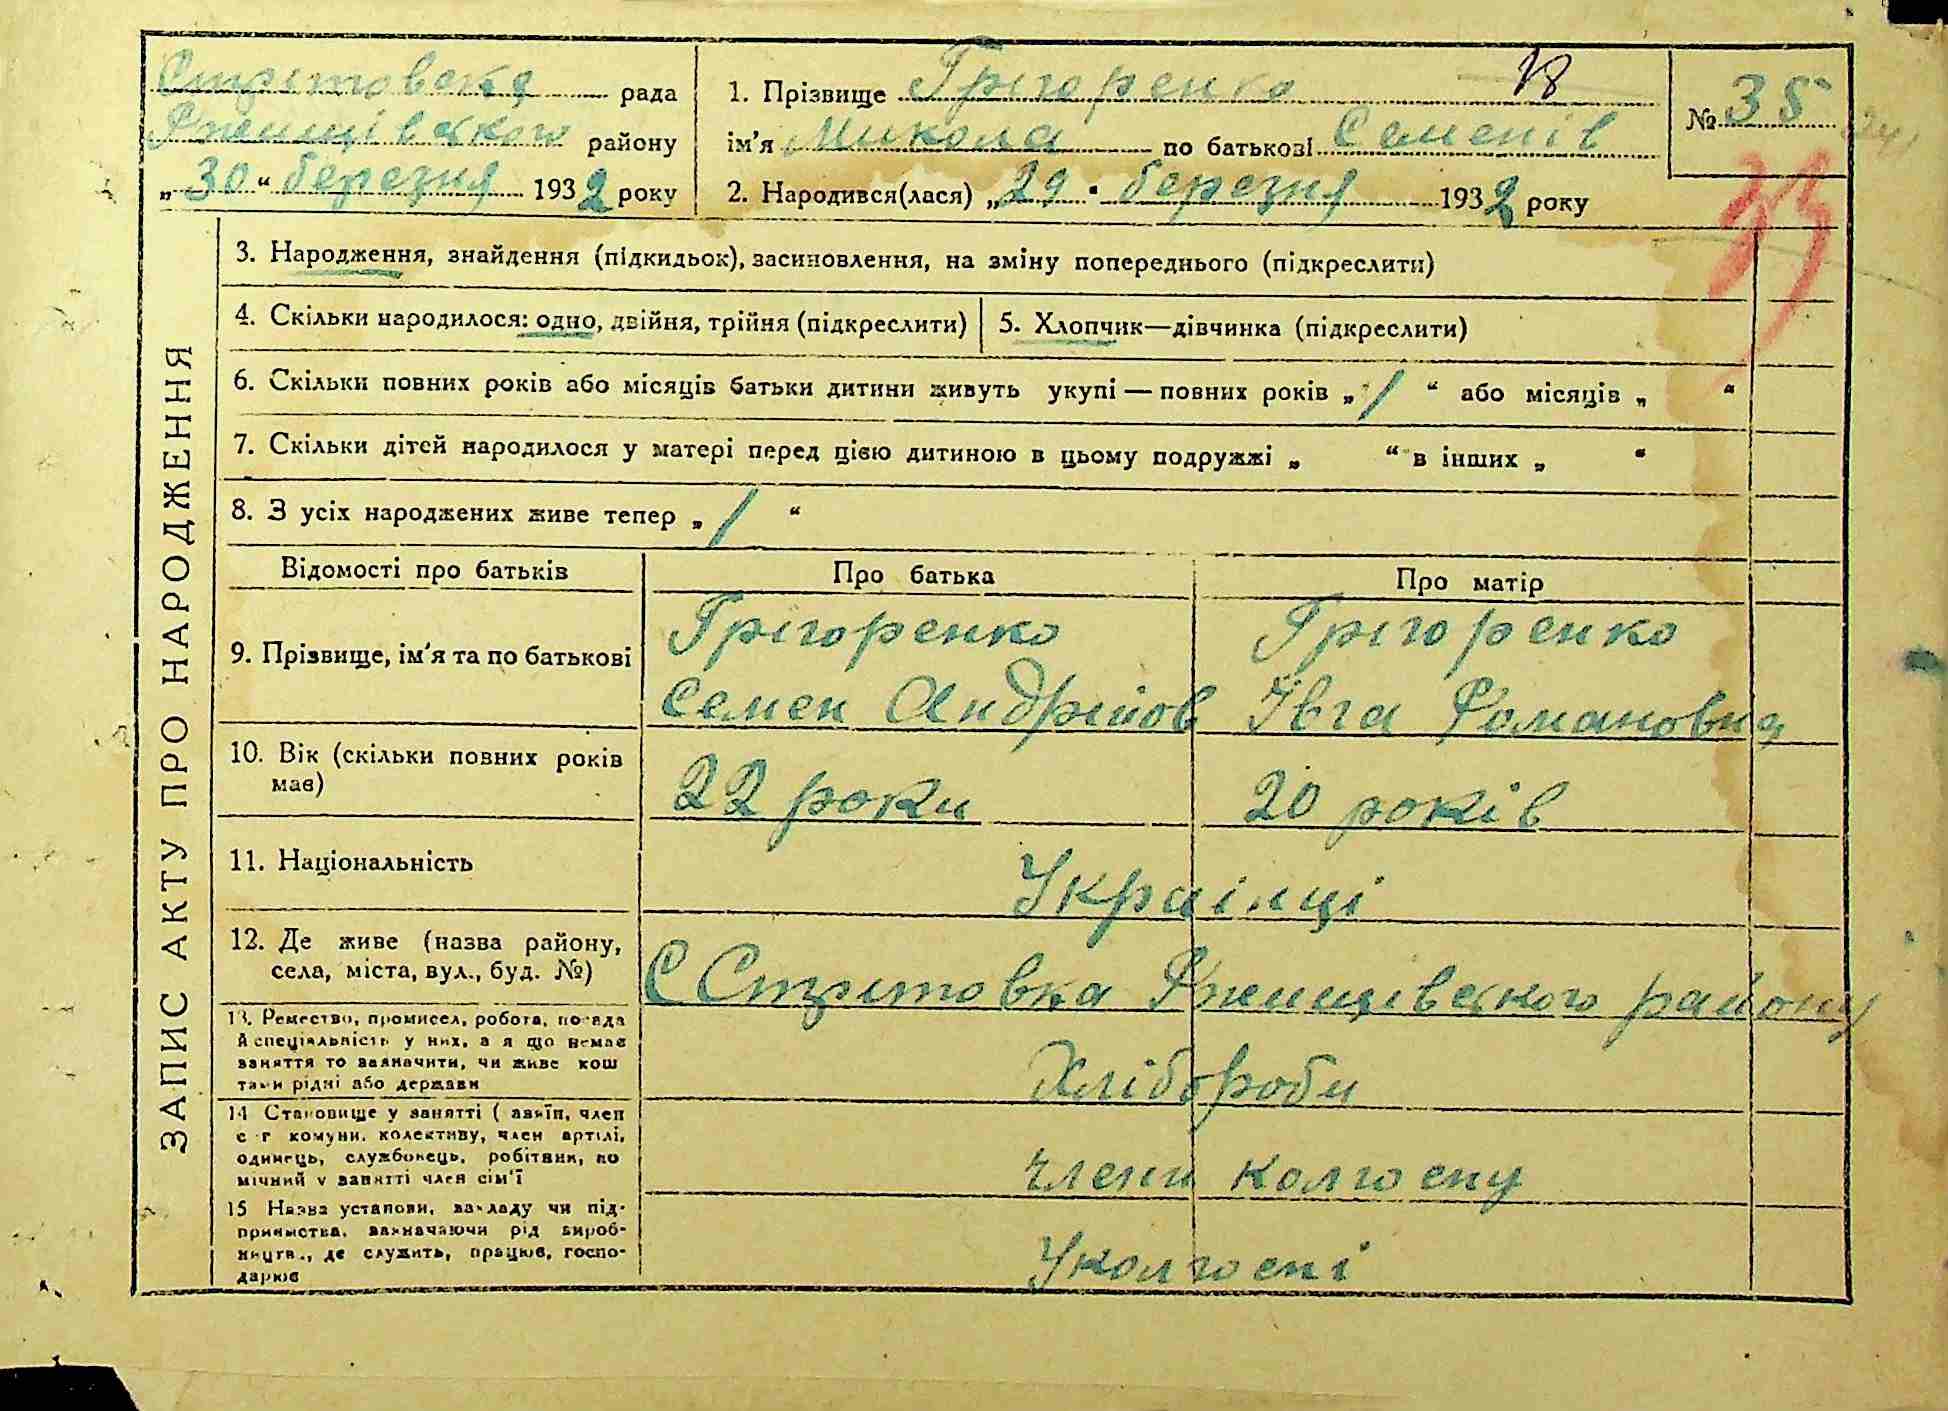 Стрітовська рада
Ржищівського району
„30“ березня 1932 року
1. Прізвище Грігоренко 18
ім'я Микола по батькові Семенів
2. Народився(лася) „29. березня 1932 року
№ 35
33
ЗАПИС АКТУ ПРО НАРОДЖЕННЯ
3. Народження, знайдення (підкидьок), засиновлення, на зміну попереднього (підкреслити)
4. Скільки народилося: одно, двійня, трійня (підкреслити)
5. Хлопчик—дівчинка (підкреслити)
6. Скільки повних років або місяців батьки дитини живуть укупі — повних років „1“ або місяців „ “
7. Скільки дітей народилося у матері перед цією дитиною в цьому подружжі „ “ в інших „ “
8. З усіх народжених живе тепер „1“
Відомості про батьків
Про батька
Про матір
9. Прізвище, ім'я та по батькові
Грігоренко
Семен Андрійов
Грігоренко
Івга Романовна
10. Вік (скільки повних років
має)
22 роки
20 років
11. Національність
Українці
12. Де живе (назва району,
села, міста, вул., буд. №)
С Стрітовка Ржищівського району
13. Ремество, промисел, робота, посада
й спеціяльність у них, а я що немає
заняття то зазначити, чи живе кош
тами рідні або держави
Хлібороби
14 Становище у занятті (хазяїн, член
с-г комуни, колективу, член артілі,
одинець, службовець, робітник, по
мічний у занятті член сім'ї
члени колгоспу
15 Назва установи, закладу чи під-
приємства, зазначаючи рід вироб-
ництв., де служить, працює, госпо-
дарює
У колгоспі